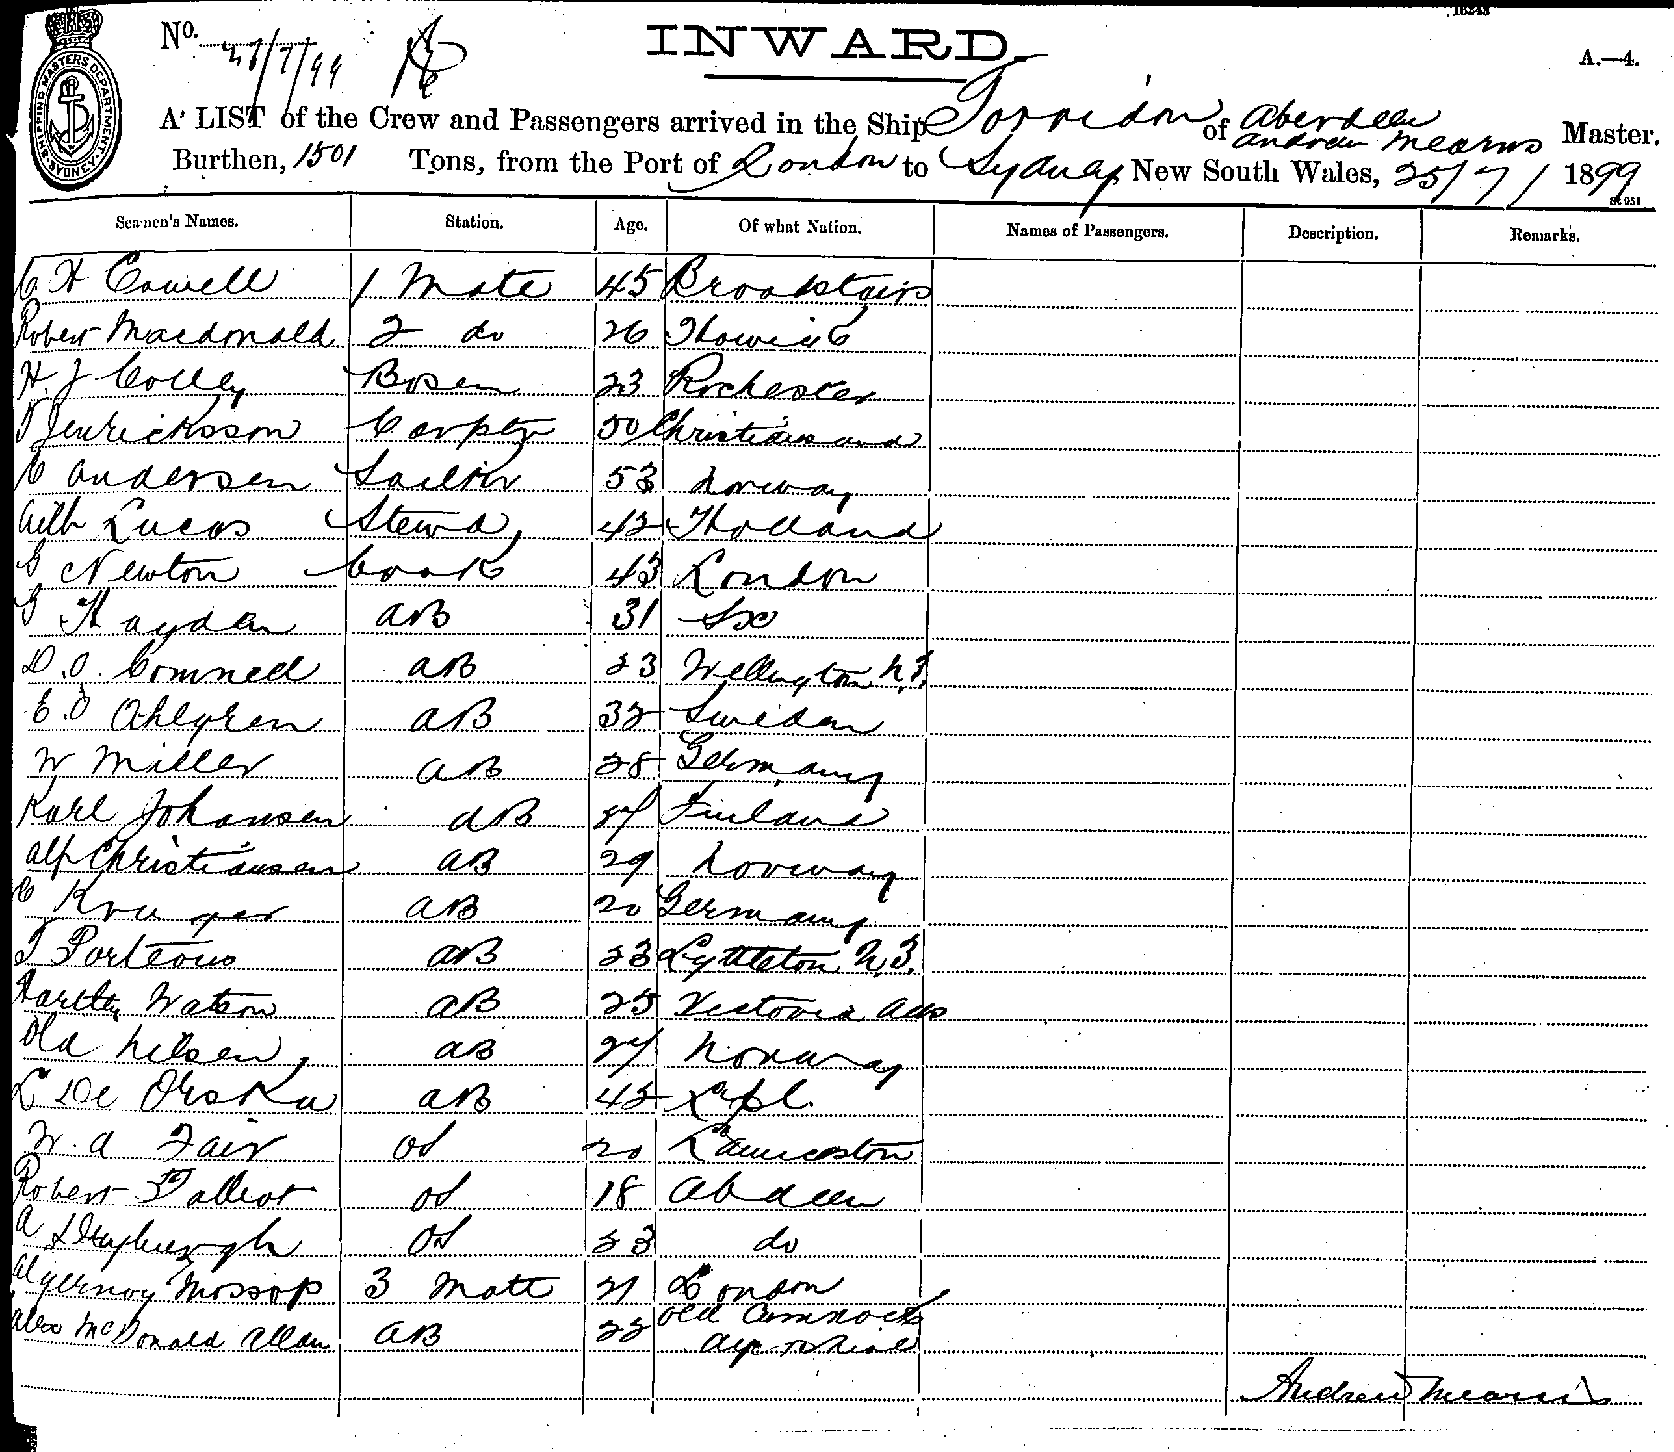 16243
No. 27/7/99
INWARD.
A.—4.
A LIST of the Crew and Passengers arrived in the Ship Torridon of Aberdeen
Andrew Mearns Master.
Burthen, 1501 Tons, from the Port of London to Sydney, New South Wales, 25/7/1899
SHIPPING MASTERS DEPARTMENT SYDNEY
Seamen's Names. Station. Age. Of what Nation. Names of Passengers. Description. Remarks.
C H Cowell 1 Mate 45 Broadstairs
Robert Macdonald 2 do 26
H. J Colley Bosen 23 Rochester
Henricksson Carpter 50
C Andersen Sailmr 53 Norway
Lucas Stewd 42 Holland
G Newton Cook 43 London
G Hayden AB 31 do
D. O. Connell AB 23 Wellington N.Z.
E. O Ahlgren AB 32 Sweden
W Miller AB 28 Germany
Karl Johansen AB Finland
Alf Christiansen AB 29 Norway
C Kruger AB 20 Germany
T Porteous AB 23 Lyttleton N.Z.
Hartley Watson AB 25 Victoria Aus
Ola Nilsen AB 27 Norway
L De Orska AB 42 Lpl
W. A Fair OS 20 Launceston
Robert Talbot OS 18 Abdeen
A OS 23 do
Algernoy Mossop 3 Mate 21 London
Alex McDonald Allan AB 22 Old Cumnock
Ayrshire
Andrew Mearns